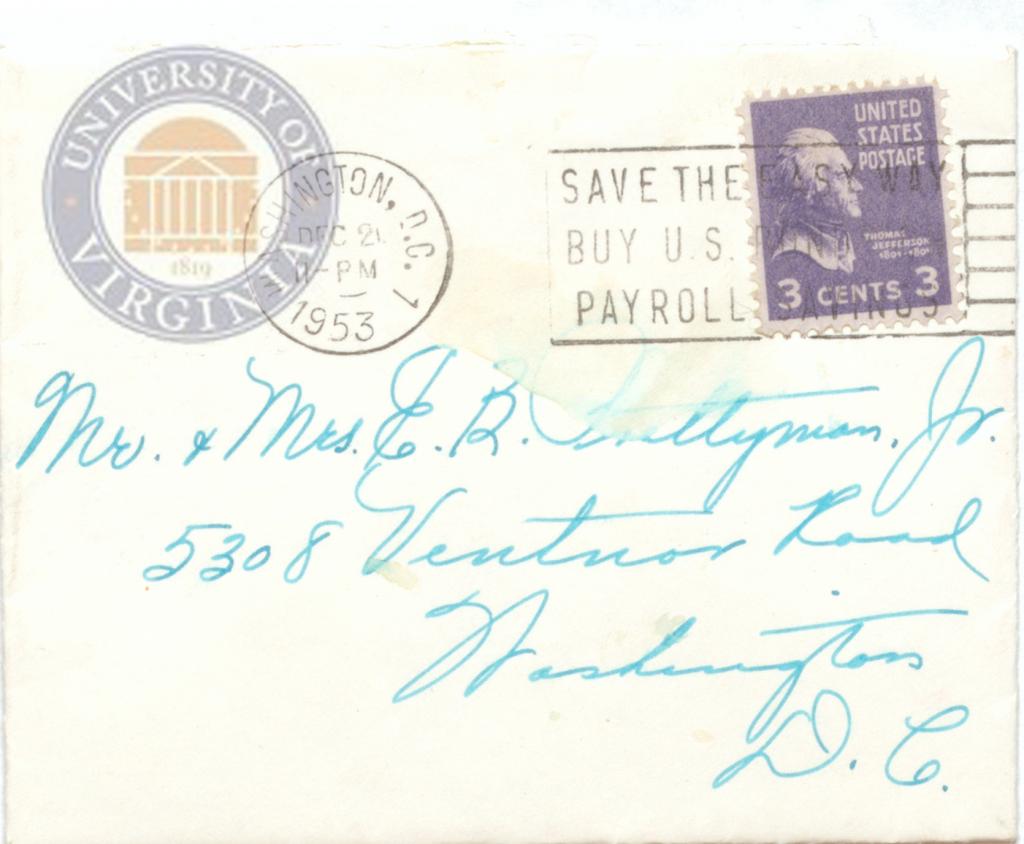 UNIVERSITY OF VIRGINIA
1819
WASHINGTON, D.C. 1
DEC 21
11-PM
1953
SAVE THE EASY WAY
BUY U.S.
PAYROLL SAVINGS
UNITED
STATES
POSTAGE
THOMAS
JEFFERSON
1801-180
3 CENTS 3
Mr. & Mrs. E. R. Jr.
5308 Ventnor Road
Washington
D. C.